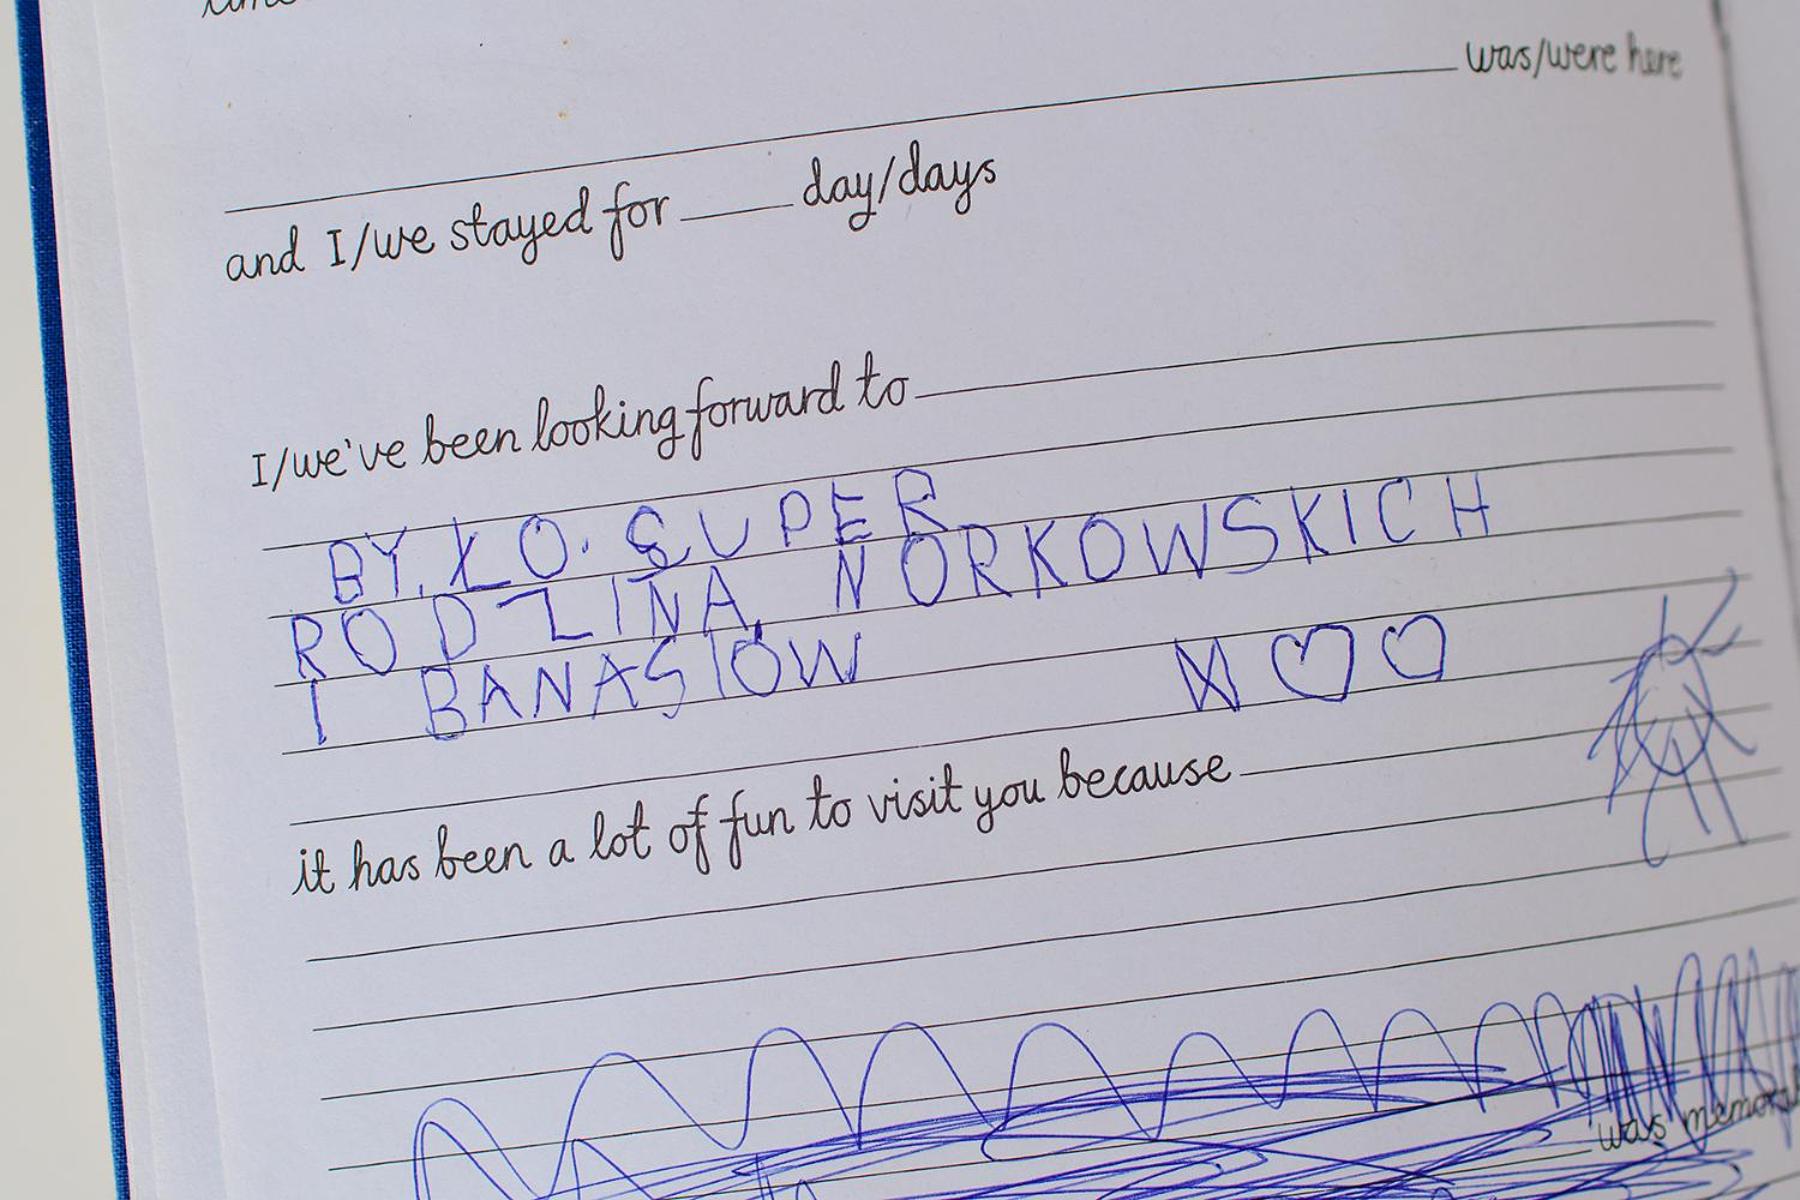 was/were here
and I/we stayed for ____ day/days
I/we've been looking forward to
BY.ŁO. SUPER
RODZINA NORKOWSKICH
I BANASIÓW
it has been a lot of fun to visit you because
was